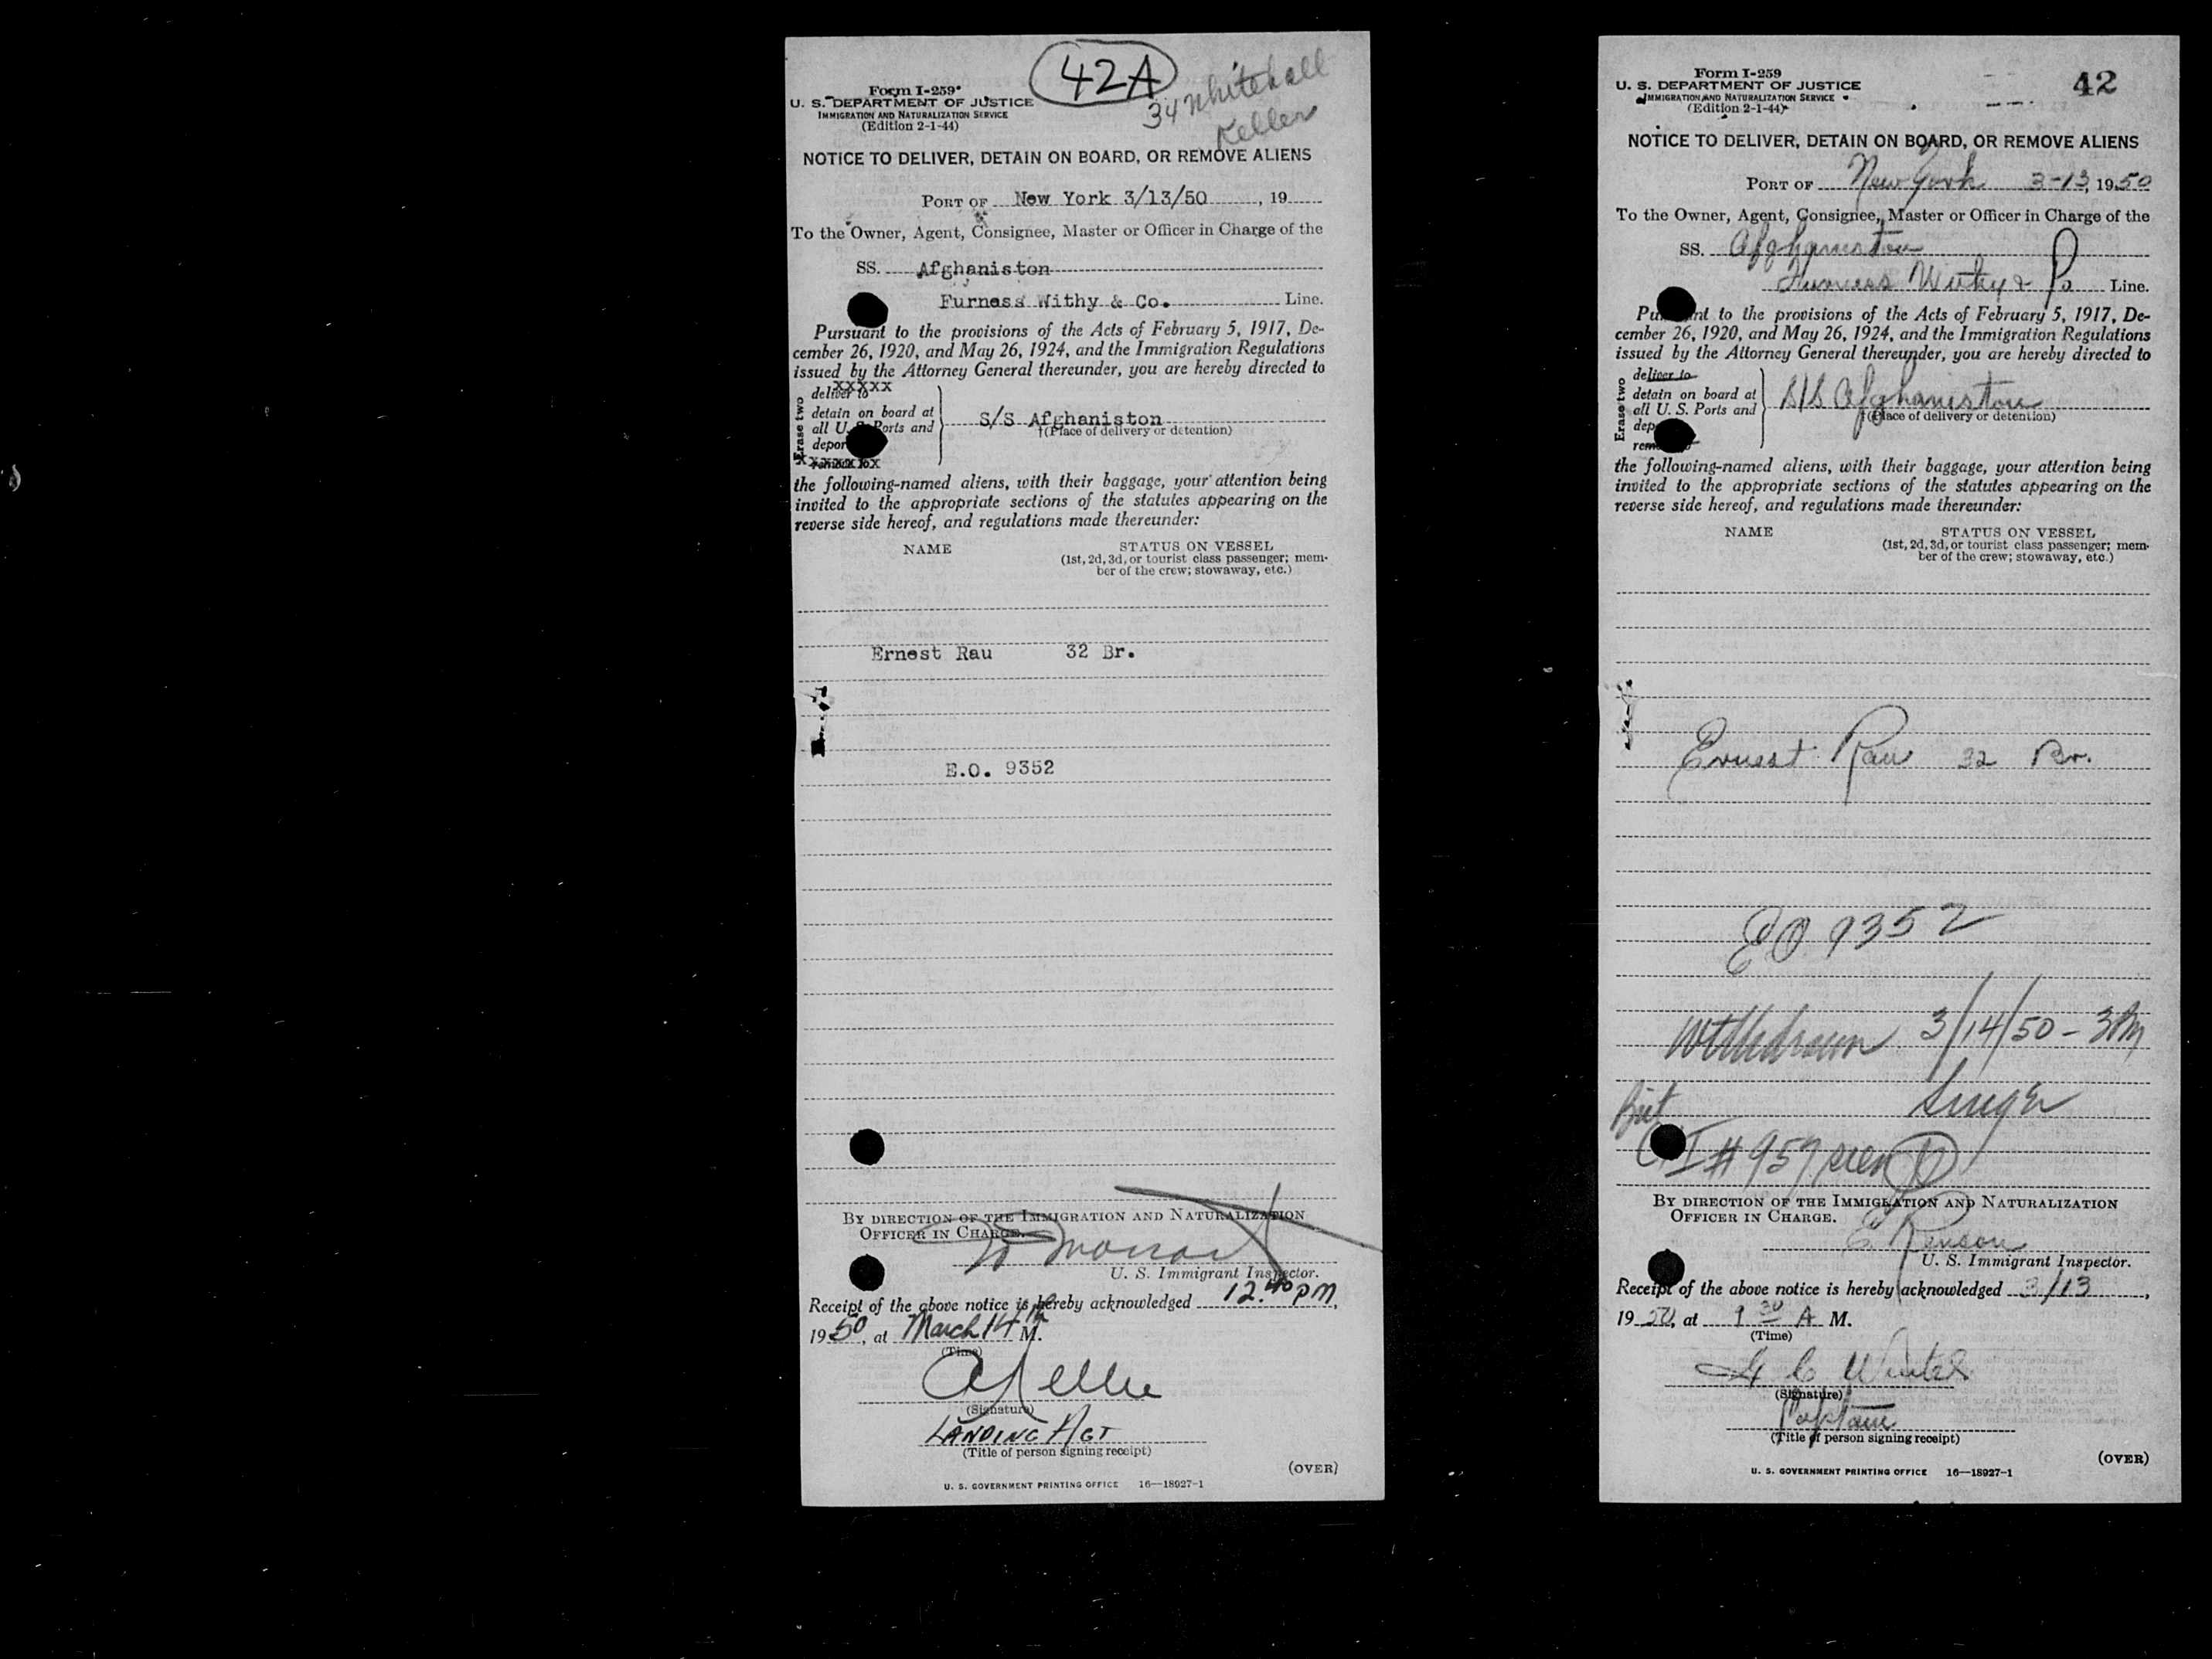 42A
34 Whitehall
Keller
Form I-259
U. S. DEPARTMENT OF JUSTICE
IMMIGRATION AND NATURALIZATION SERVICE
(Edition 2-1-44)
NOTICE TO DELIVER, DETAIN ON BOARD, OR REMOVE ALIENS
PORT OF New York 3/13/50, 19
To the Owner, Agent, Consignee, Master or Officer in Charge of the
SS. Afghaniston
Furness Withy & Co. Line.
Pursuant to the provisions of the Acts of February 5, 1917, De-
cember 26, 1920, and May 26, 1924, and the Immigration Regulations
issued by the Attorney General thereunder, you are hereby directed to
Erase two
deliver to
xxxxx
detain on board at
all U. S. Ports and
depor
remove to
xxxxxxx
S/S Afghaniston
†(Place of delivery or detention)
the following-named aliens, with their baggage, your attention being
invited to the appropriate sections of the statutes appearing on the
reverse side hereof, and regulations made thereunder:
NAME STATUS ON VESSEL
(1st, 2d, 3d, or tourist class passenger; mem-
ber of the crew; stowaway, etc.)
Ernest Rau 32 Br.
E.O. 9352
BY DIRECTION OF THE IMMIGRATION AND NATURALIZATION
OFFICER IN CHARGE.
U. S. Immigrant Inspector.
Receipt of the above notice is hereby acknowledged 12.40 PM,
1950, at March 14th M.
(Time)
(Signature)
LANDING AGT
(Title of person signing receipt)
(OVER)
U. S. GOVERNMENT PRINTING OFFICE 16—18927-1
Form I-259
42
U. S. DEPARTMENT OF JUSTICE
IMMIGRATION AND NATURALIZATION SERVICE
(Edition 2-1-44)
NOTICE TO DELIVER, DETAIN ON BOARD, OR REMOVE ALIENS
PORT OF New York 3-13, 1950
To the Owner, Agent, Consignee, Master or Officer in Charge of the
SS. Afghaniston
Furness Withy & Co Line.
Pursuant to the provisions of the Acts of February 5, 1917, De-
cember 26, 1920, and May 26, 1924, and the Immigration Regulations
issued by the Attorney General thereunder, you are hereby directed to
Erase two
deliver to
detain on board at
all U. S. Ports and
dep
rem
S/S Afghaniston
†(Place of delivery or detention)
the following-named aliens, with their baggage, your attention being
invited to the appropriate sections of the statutes appearing on the
reverse side hereof, and regulations made thereunder:
NAME STATUS ON VESSEL
(1st, 2d, 3d, or tourist class passenger; mem-
ber of the crew; stowaway, etc.)
Ernest Rau 32 Br.
EO 9352
Withdrawn 3/14/50 - 3PM
Singer
I # 957
BY DIRECTION OF THE IMMIGRATION AND NATURALIZATION
OFFICER IN CHARGE.
U. S. Immigrant Inspector.
Receipt of the above notice is hereby acknowledged 3/13,
1950, at 9 30 A M.
(Time)
(Signature)
Captain
(Title of person signing receipt)
(OVER)
U. S. GOVERNMENT PRINTING OFFICE 16—18927-1